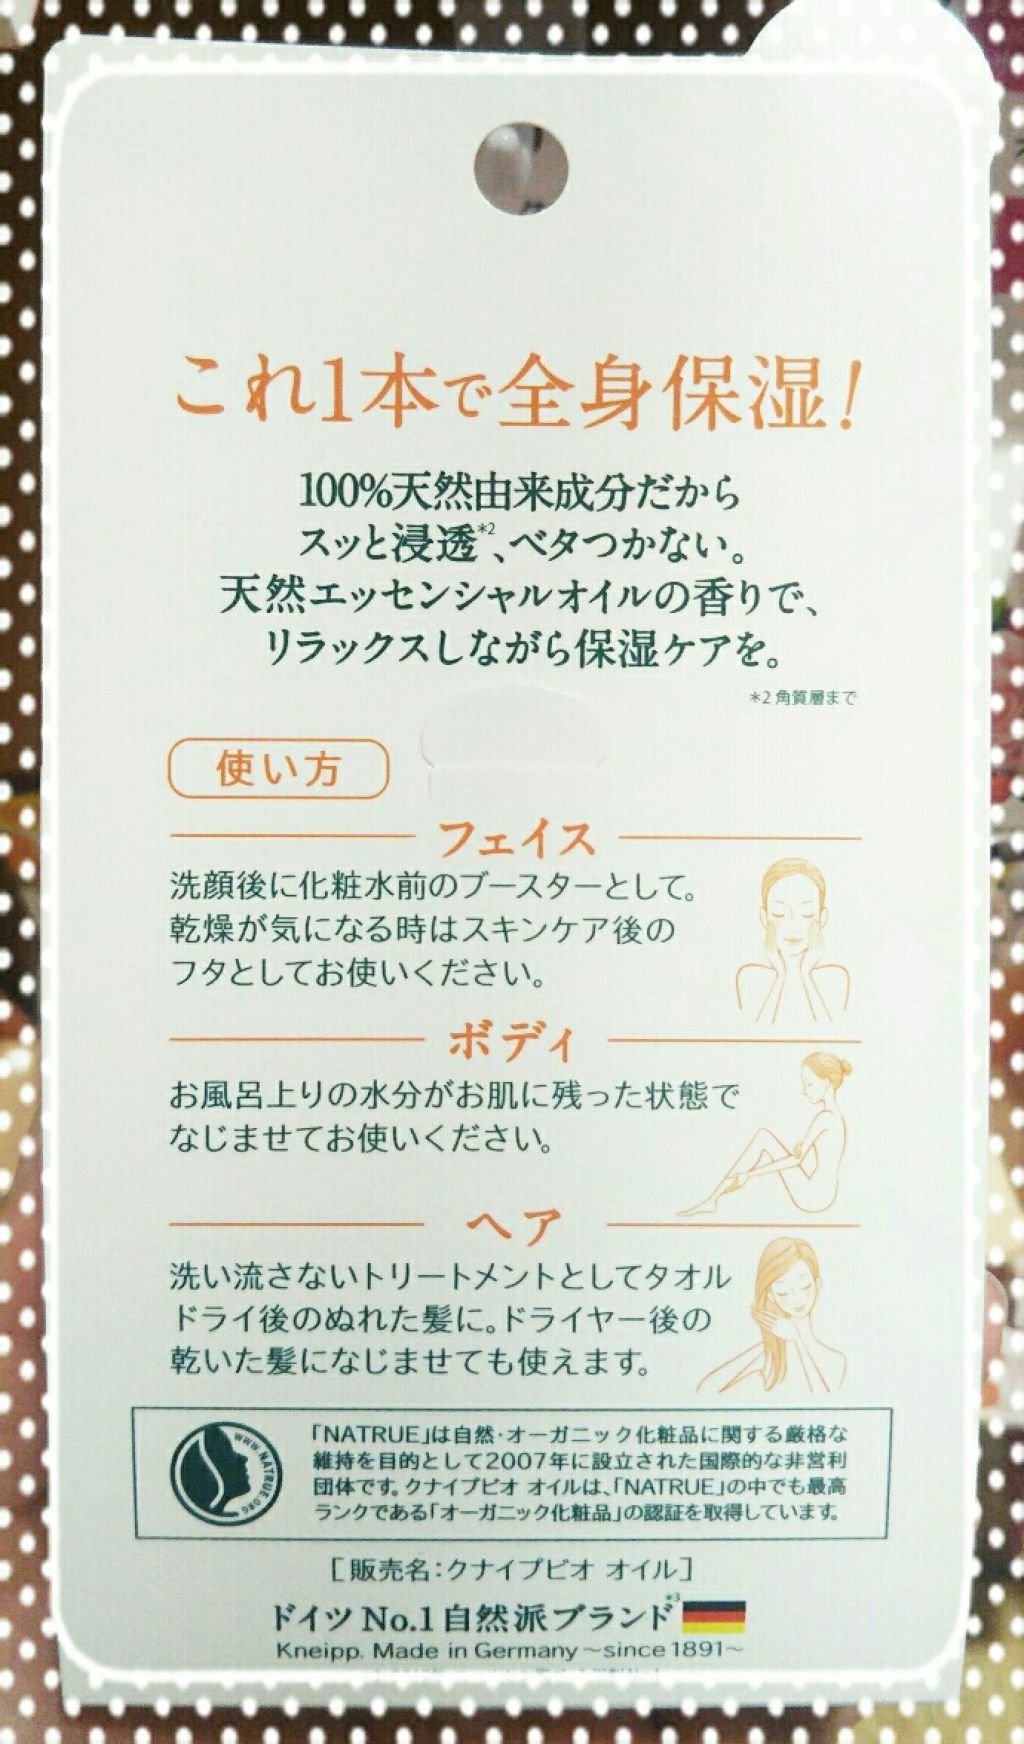 これ1本で全身保湿!
100%天然由来成分だから
スッと浸透*2、ベタつかない。
天然エッセンシャルオイルの香りで、
リラックスしながら保湿ケアを。
*2 角質層まで
使い方
フェイス
洗顔後に化粧水前のブースターとして。
乾燥が気になる時はスキンケア後の
フタとしてお使いください。
ボディ
お風呂上りの水分がお肌に残った状態で
なじませてお使いください。
ヘア
洗い流さないトリートメントとしてタオル
ドライ後のぬれた髪に。ドライヤー後の
乾いた髪になじませても使えます。
WWW.NATRUE.ORG
「NATRUE」は自然・オーガニック化粧品に関する厳格な
維持を目的として2007年に設立された国際的な非営利
団体です。クナイプビオ オイルは、「NATRUE」の中でも最高
ランクである「オーガニック化粧品」の認証を取得しています。
[販売名:クナイプビオ オイル]
ドイツ No.1 自然派ブランド*3
Kneipp. Made in Germany ~since 1891~